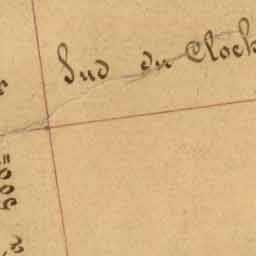 Sud du Clock
500=